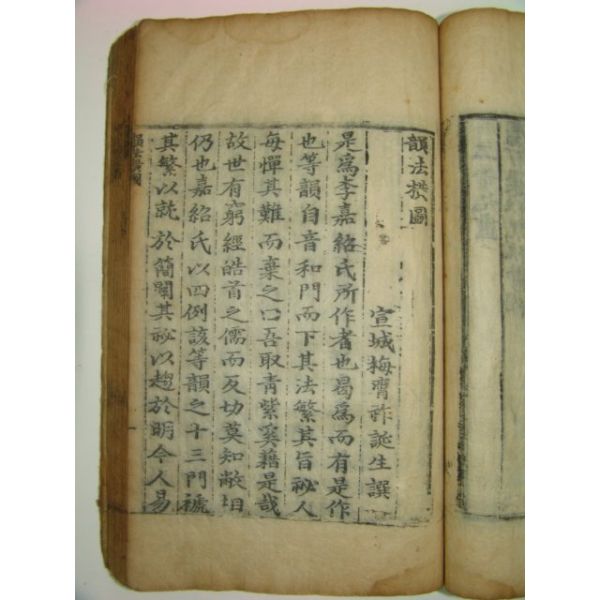 韻法橫圖
宣城梅膺祚誕生譔
是爲李嘉紹氏所作者也曷爲而有是作
也等韻自音和門而下其法繁其旨祕人
每憚其難而棄之口吾取青紫奚藉是哉
故世有窮經皓首之儒而反切莫知敝相
仍也嘉紹氏以四例該等韻之十三門褫
其繁以就於簡闡其祕以趨於明令人易
韻法橫圖